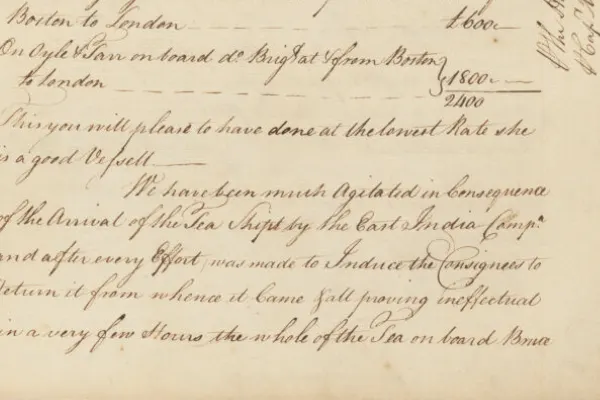 Boston to London £600
On Oyle & Tarr on board do Brigt at & from Boston
to London 1800
2400
This you will please to have done at the lowest Rate she
is a good Vessell
We have been much Agitated in Consequence
of the Arrival of the Tea Shipt by the East India Compn.
and after every Effort, was made to Induce the Consignees to
return it from whence it Came & all proving ineffectual
in a very few Hours the whole of the Tea on board Bruce